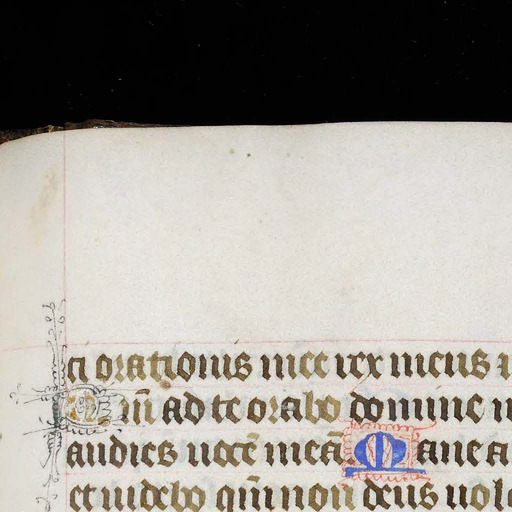 ci orationis mee rex meus
Qm̄ ad te orabo domine
audies uocē meā Mane a
et uidebo qm̄ non deus uole